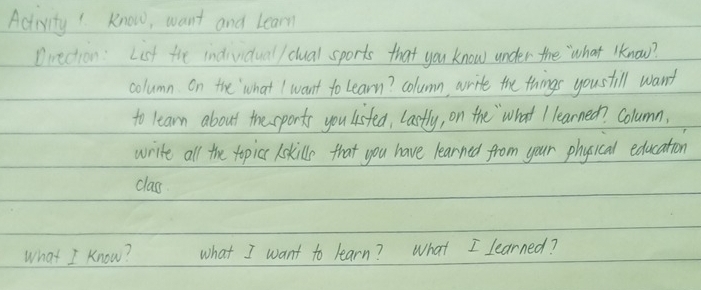 Activity 1. Know, want and Learn
Direction: List the individual/dual sports that you know under the "what I know?
column. On the 'what I want to Learn? column, write the things you still want
to learn about the sports you listed, Lastly, on the "what I learned? Column,
write all the topics /skills that you have learned from your physical education
class
What I Know? what I want to learn? What I learned?